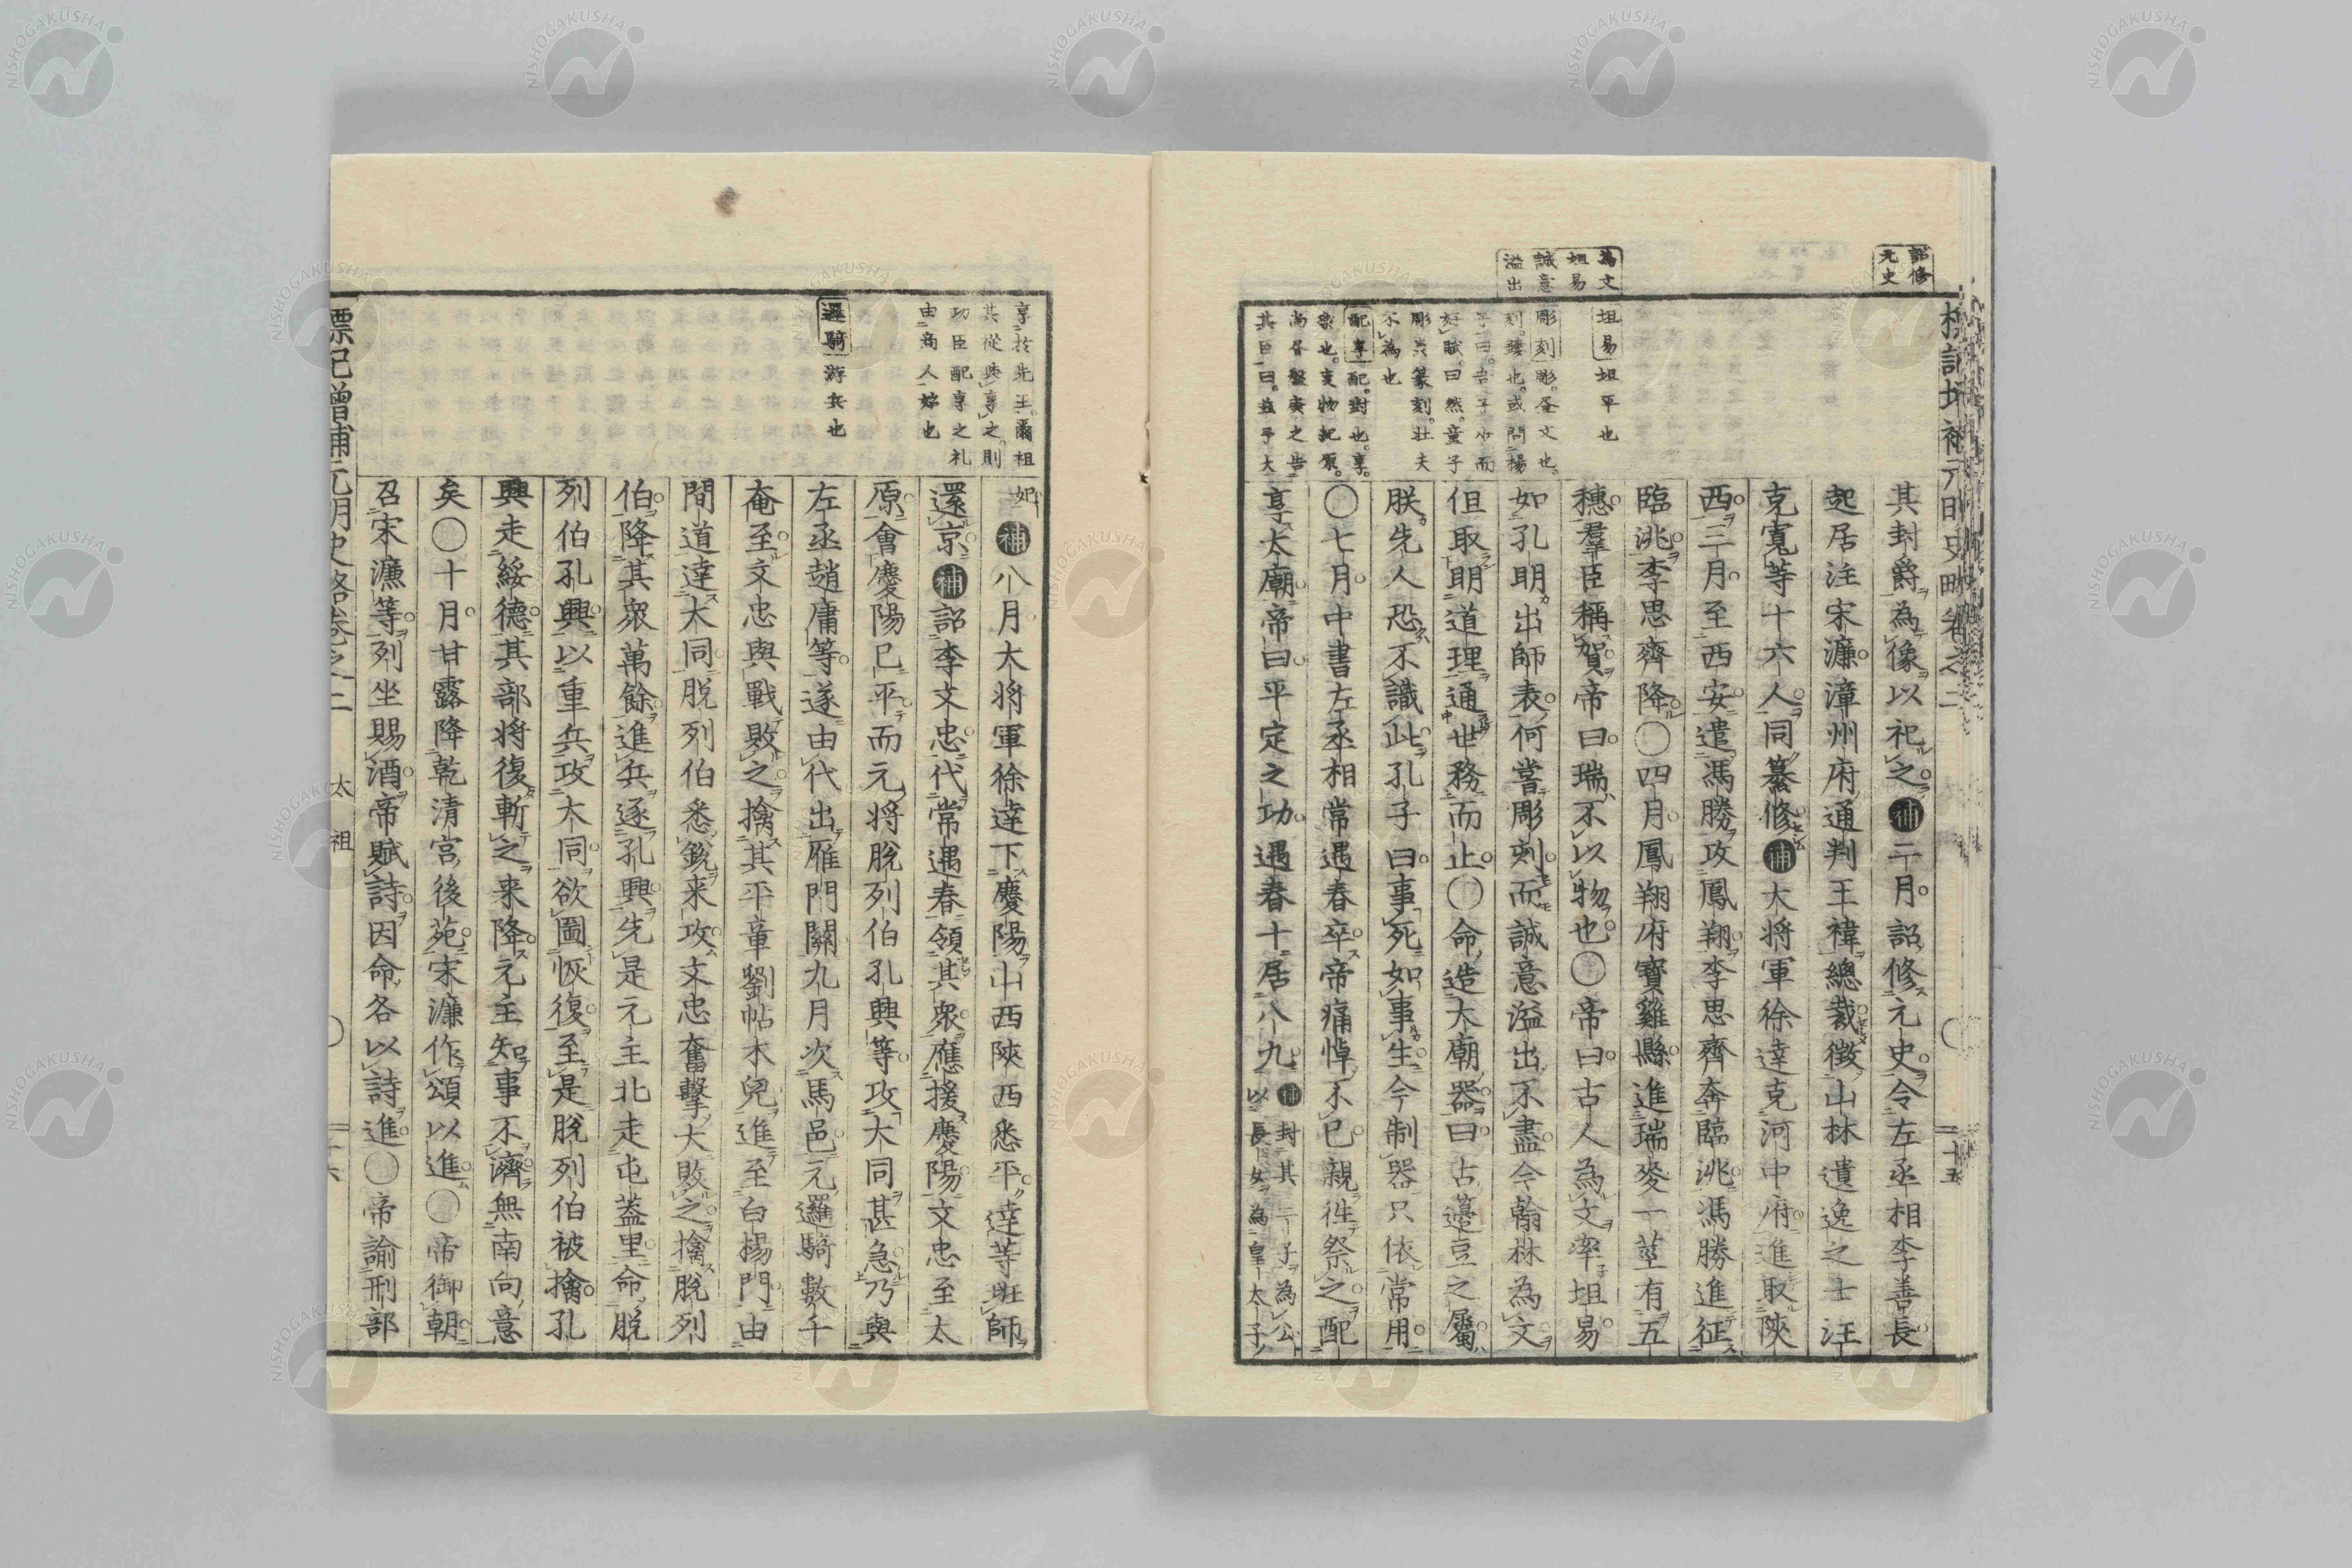 標記増補元明史略卷之二
二十五
詔修
元史
為文
坦易
誠意
溢出
坦易坦平也
彫刻彫。畱文也。
刻。鏤也。或問揚
子曰。吾子少而
好賦。曰然。童子
彫虫篆刻。壯夫
不為也
配享配。對也。享。
祭也。
尚書盤庚之告
其臣曰。茲予大
其封爵為像以祀之補二月詔修元史令左丞相李善長
起居注宋濂漳州府通判王禕總裁徵山林遺逸之士汪
克寬等十六人同纂修補大將軍徐達克河中府進取陝
西三月至西安遣馮勝攻鳳翔李思齊奔臨洮馮勝進征
臨洮李思齊降〇四月鳳翔府寶雞縣進瑞麥一莖有五
穗羣臣稱賀帝曰瑞不以物也〇帝曰古人為文率坦易
如孔明出師表何嘗彫刻而誠意溢出不盡今翰林為文
但取明道理通世務而止〇命造大廟器曰古籩豆之屬
朕先人恐不識此孔子曰事死如事生今制器只依常用
〇七月中書左丞相常遇春卒帝痛悼不已親往祭之配
享太廟帝曰平定之功遇春十居八九補封其二子為公
以長女為皇太子
享于先王。爾祖
其從與享之。則
功臣配享之礼
由商人始也
邏騎游兵也
妃補八月大將軍徐達下慶陽山西陝西悉平達等班師
還京補詔李文忠代常遇春領其衆應援慶陽文忠至太
原會慶陽已平而元將脫列伯孔興等攻大同甚急乃與
左丞趙庸等遂由代出雁門關九月次馬邑元邏騎數千
奄至文忠與戰敗之擒其平章劉帖木兒進至白揚門由
間道達大同脫列伯悉銳来攻文忠奮擊大敗之擒脫列
伯降其衆萬餘進兵逐孔興先是元主北走屯蓋里命脫
列伯孔興以重兵攻大同欲圖恢復至是脫列伯被擒孔
興走綏德其部將復斬之来降元主知事不濟無南向意
矣〇十月甘露降乾清宮後苑宋濂作頌以進〇帝御朝
召宋濂等列坐賜酒帝賦詩因命各以詩進〇帝諭刑部
標記增補元明史略卷之二　太祖　二十六